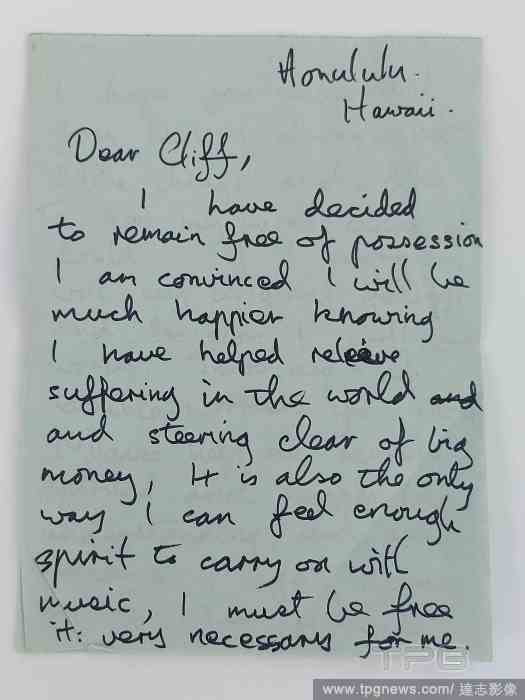 Honululu.
Hawaii.
Dear Cliff,
I have decided
to remain free of possession
I am convinced I will be
much happier knowing
I have helped releive
suffering in the world and
and steering clear of big
money, It is also the only
way I can feel enough
spirit to carry on with
music, I must be free
it: very necessary for me.
TPG
www.tpgnews.com/ 達志影像